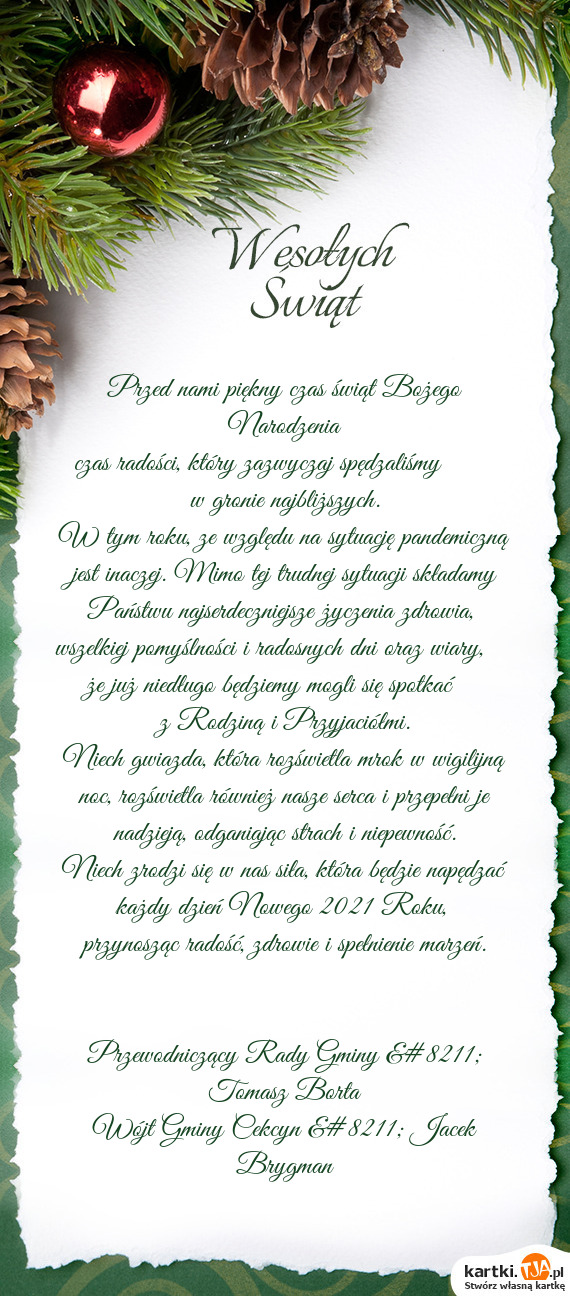 Wesołych
Świąt
Przed nami piękny czas świąt Bożego
Narodzenia
czas radości, który zazwyczaj spędzaliśmy
w gronie najbliższych.
W tym roku, ze względu na sytuację pandemiczną
jest inaczej. Mimo tej trudnej sytuacji składamy
Państwu najserdeczniejsze życzenia zdrowia,
wszelkiej pomyślności i radosnych dni oraz wiary,
że już niedługo będziemy mogli się spotkać
z Rodziną i Przyjaciółmi.
Niech gwiazda, która rozświetla mrok w wigilijną
noc, rozświetla również nasze serca i przepełni je
nadzieją, odganiając strach i niepewność.
Niech zrodzi się w nas siła, która będzie napędzać
każdy dzień Nowego 2021 Roku,
przynosząc radość, zdrowie i spełnienie marzeń.
Przewodniczący Rady Gminy &#8211;
Tomasz Borta
Wójt Gminy Cekcyn &#8211; Jacek
Brygman
kartki.TJA.pl
Stwórz własną kartkę